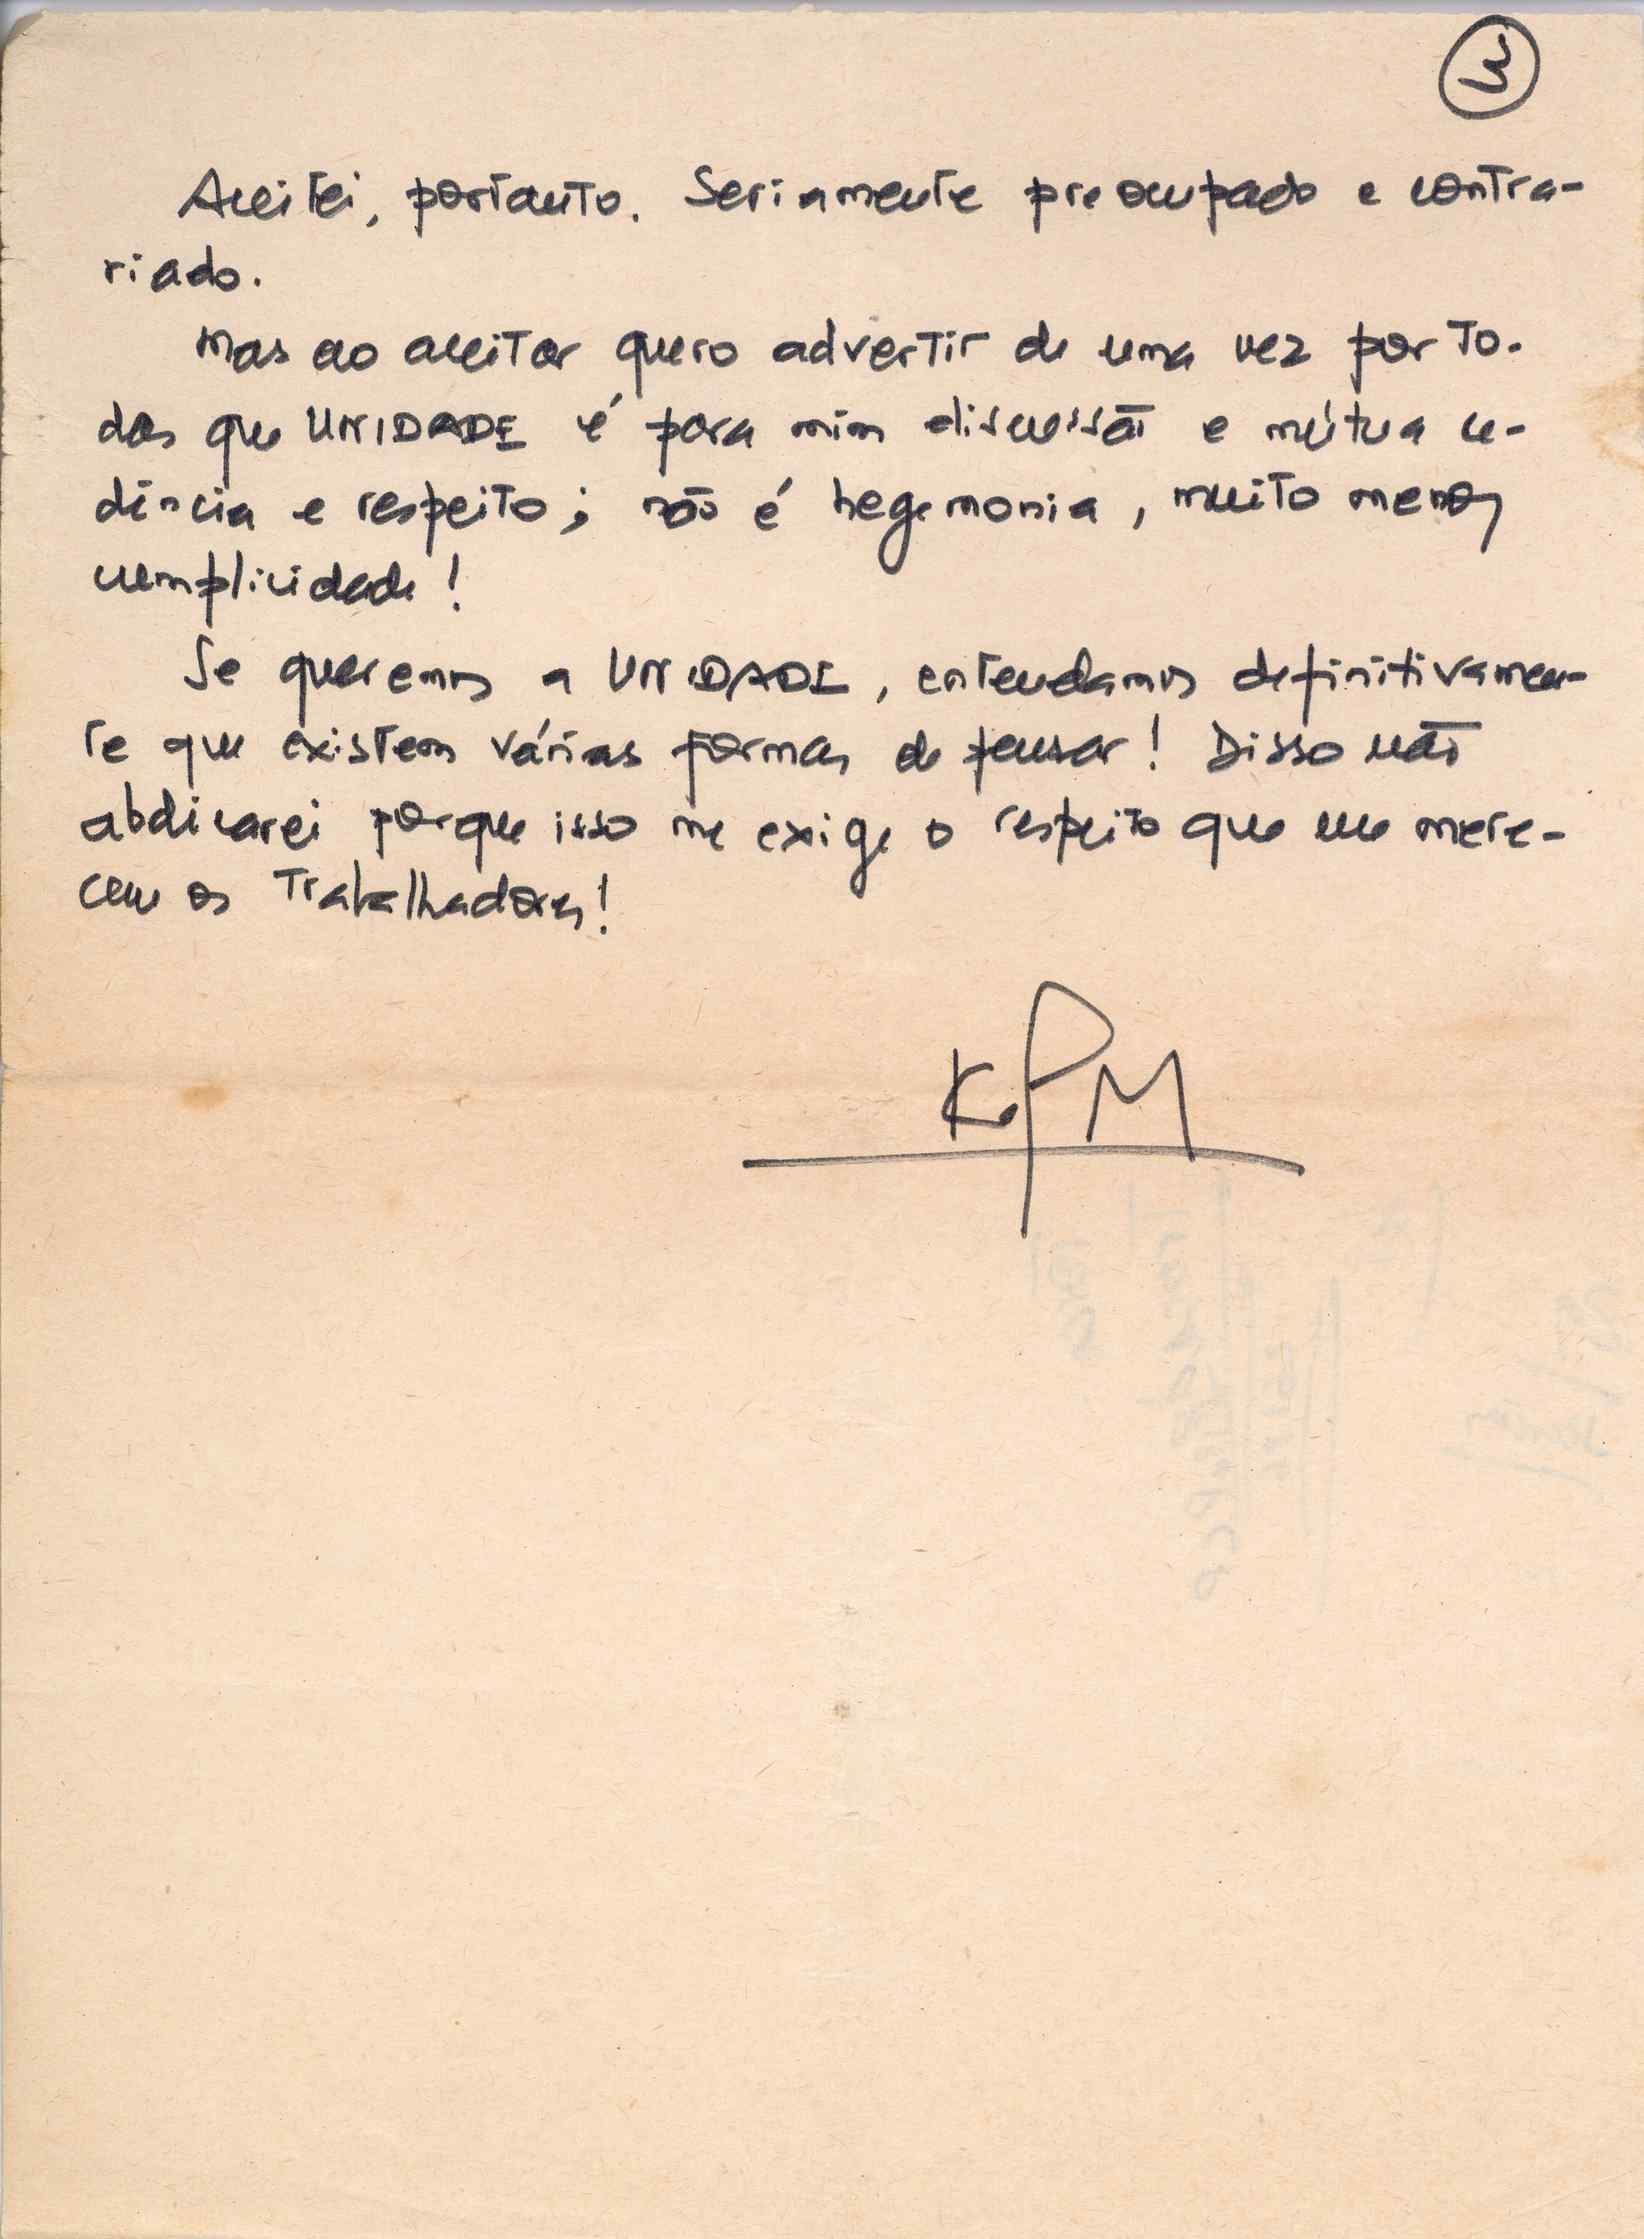 3
Aceitei, portanto. Seriamente preocupado e contra-
riado.
Mas ao aceitar quero advertir de uma vez por to-
das que UNIDADE é para mim discussão e mútua ce-
dência e respeito; não é hegemonia, muito menos
cumplicidade!
Se queremos a UNIDADE, entendamos definitivamen-
te que existem várias formas de pensar! Disso não
abdicarei porque isso me exige o respeito que me mere-
cem os Trabalhadores!
KPM